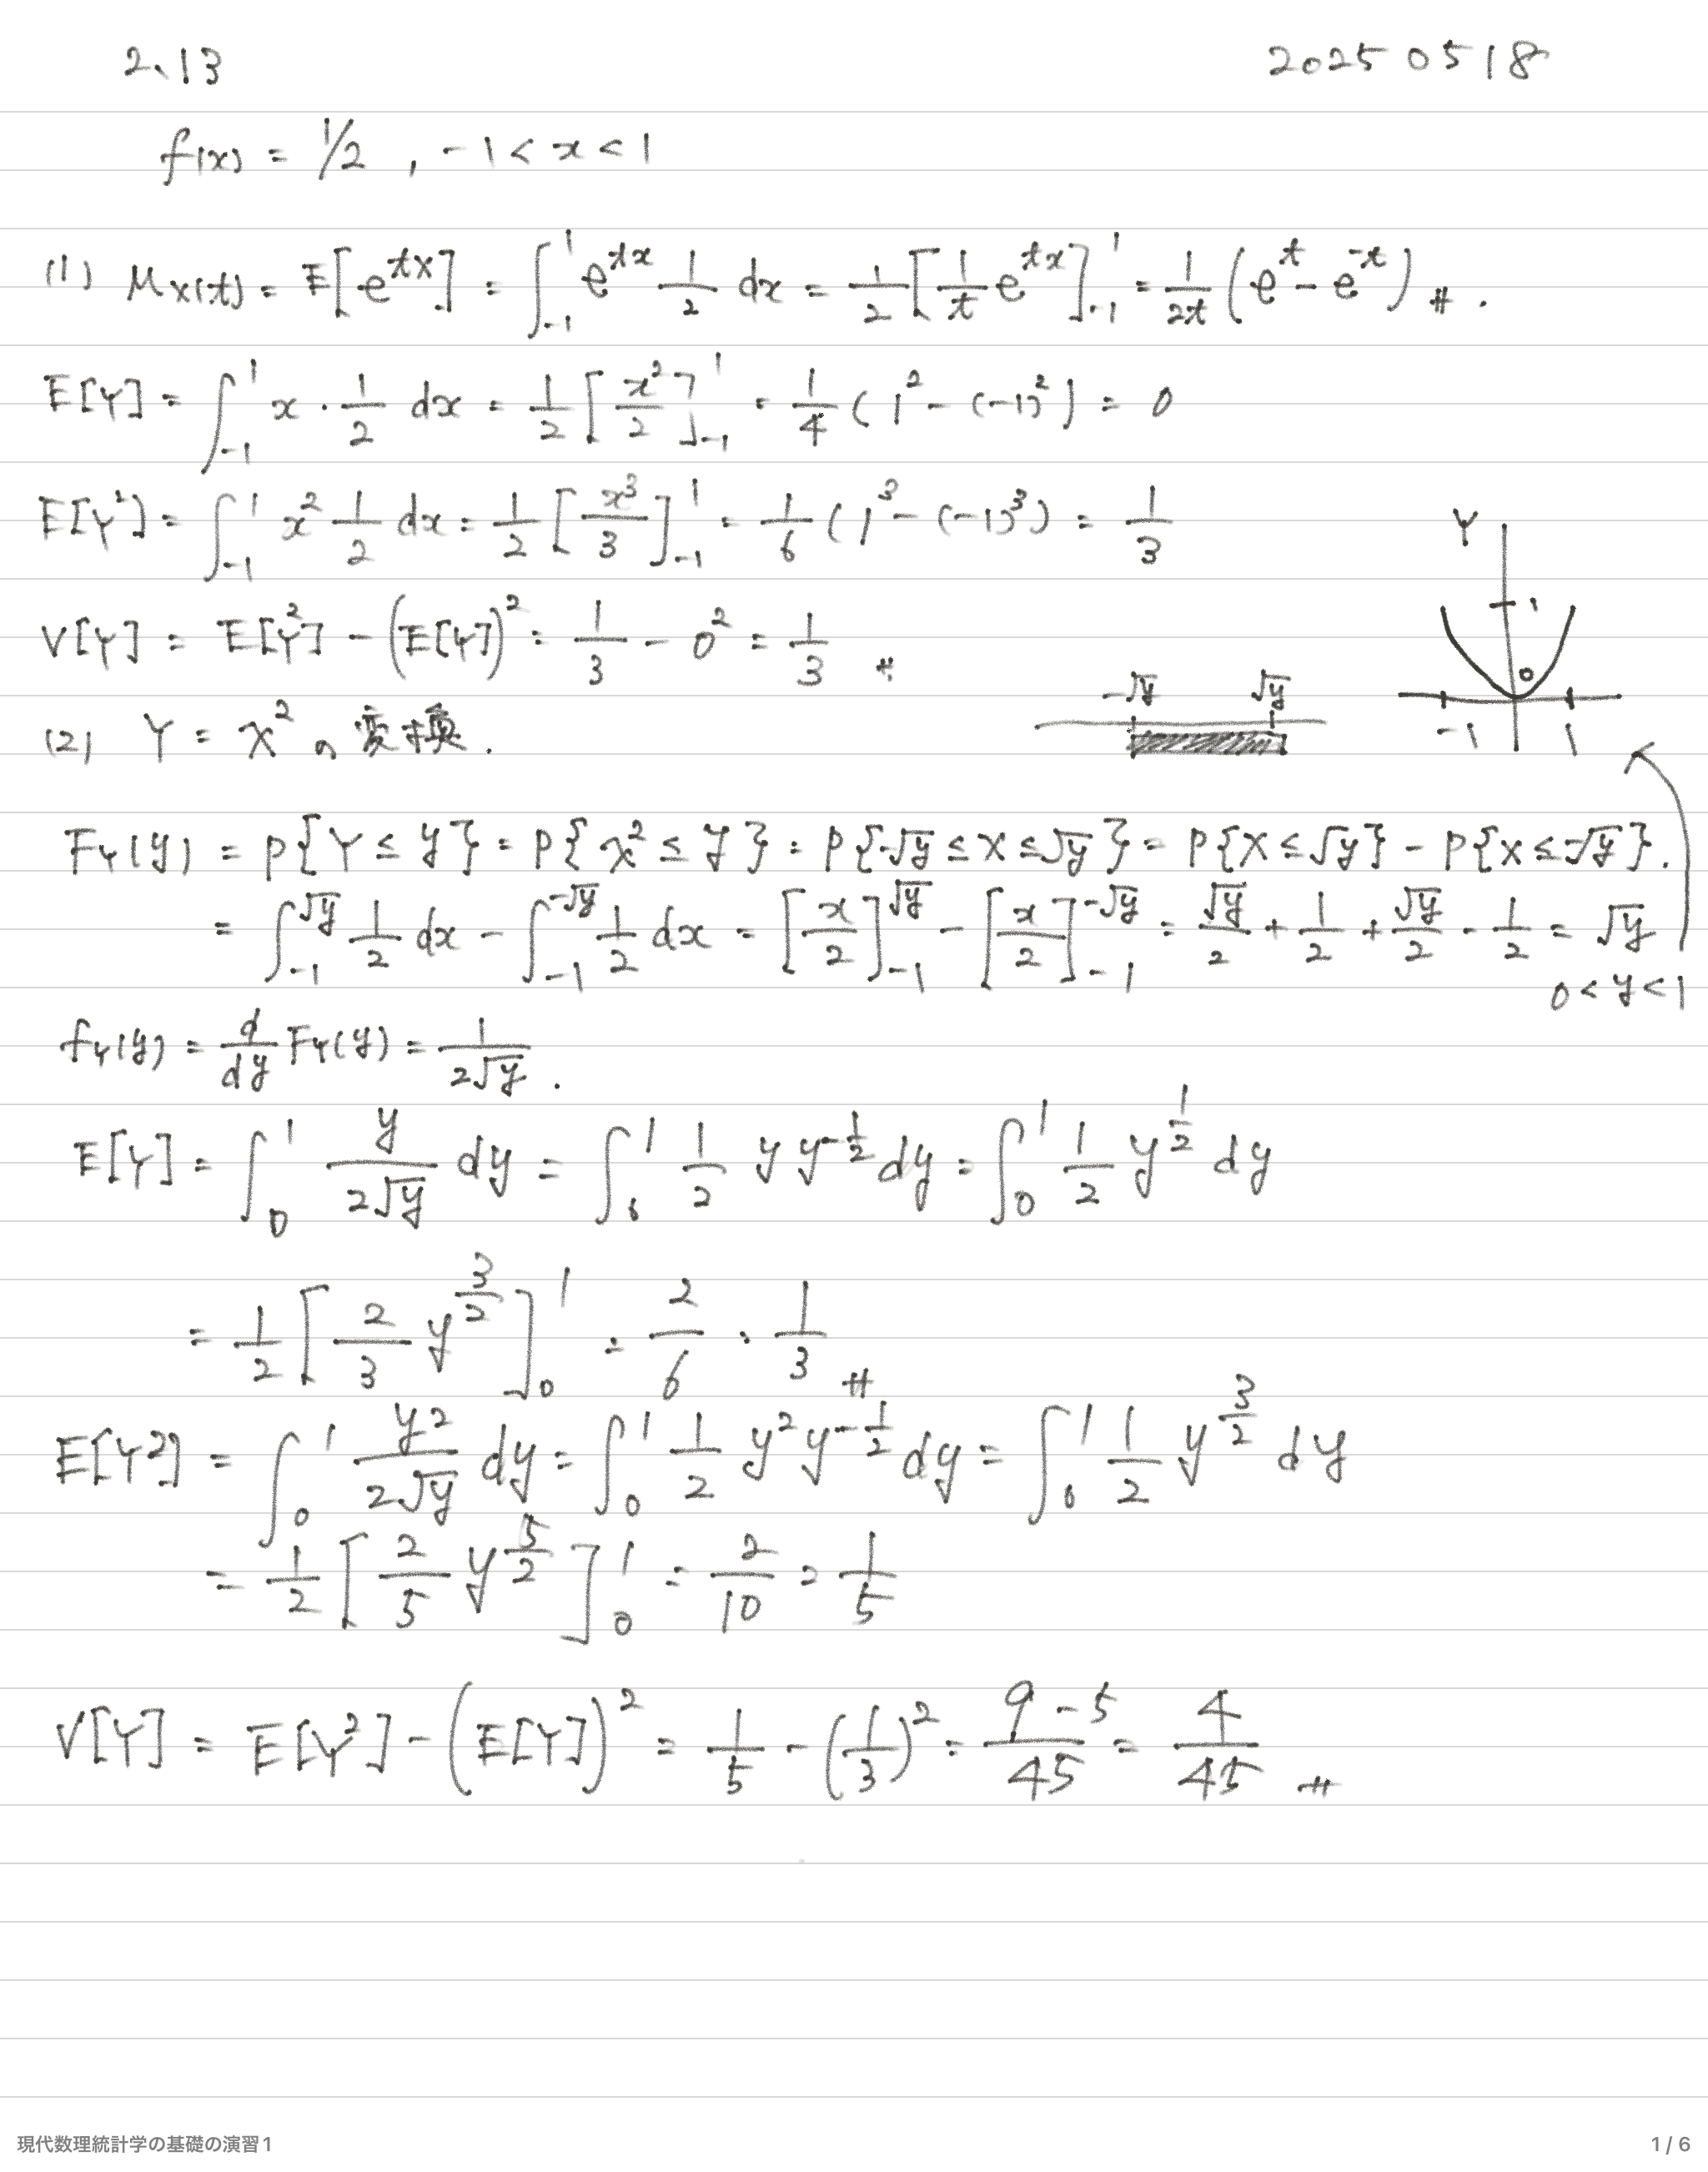 2.13 20250518
f(x) = 1/2 , -1 < x < 1
(1) M_X(t) = E[e^{tX}] = ∫_{-1}^{1} e^{tx} \frac{1}{2} dx = \frac{1}{2} [\frac{1}{t} e^{tx}]_{-1}^{1} = \frac{1}{2t} (e^{t} - e^{-t}) # .
E[Y] = ∫_{-1}^{1} x · \frac{1}{2} dx = \frac{1}{2} [\frac{x^2}{2}]_{-1}^{1} = \frac{1}{4} (1^2 - (-1)^2) = 0
E[Y^2] = ∫_{-1}^{1} x^2 \frac{1}{2} dx = \frac{1}{2} [\frac{x^3}{3}]_{-1}^{1} = \frac{1}{6} (1^3 - (-1)^3) = \frac{1}{3}
V[Y] = E[Y^2] - (E[Y])^2 = \frac{1}{3} - 0^2 = \frac{1}{3} #
Y 1 0 -1 1
-√y √y
(2) Y = X^2 の変換.
F_Y(y) = P{Y ≤ y} = P{X^2 ≤ y} = P{-√y ≤ X ≤ √y} = P{X ≤ √y} - P{X ≤ -√y}.
= ∫_{-1}^{√y} \frac{1}{2} dx - ∫_{-1}^{-√y} \frac{1}{2} dx = [\frac{x}{2}]_{-1}^{√y} - [\frac{x}{2}]_{-1}^{-√y} = \frac{√y}{2} + \frac{1}{2} + \frac{√y}{2} - \frac{1}{2} = √y
0 < y < 1
f_Y(y) = \frac{d}{dy} F_Y(y) = \frac{1}{2√y} .
E[Y] = ∫_{0}^{1} \frac{y}{2√y} dy = ∫_{0}^{1} \frac{1}{2} y y^{-\frac{1}{2}} dy = ∫_{0}^{1} \frac{1}{2} y^{\frac{1}{2}} dy
= \frac{1}{2} [\frac{2}{3} y^{\frac{3}{2}}]_{0}^{1} = \frac{2}{6} = \frac{1}{3} #
E[Y^2] = ∫_{0}^{1} \frac{y^2}{2√y} dy = ∫_{0}^{1} \frac{1}{2} y^2 y^{-\frac{1}{2}} dy = ∫_{0}^{1} \frac{1}{2} y^{\frac{3}{2}} dy
= \frac{1}{2} [\frac{2}{5} y^{\frac{5}{2}}]_{0}^{1} = \frac{2}{10} = \frac{1}{5}
V[Y] = E[Y^2] - (E[Y])^2 = \frac{1}{5} - (\frac{1}{3})^2 = \frac{9-5}{45} = \frac{4}{45} #
現代数理統計学の基礎の演習1 1 / 6